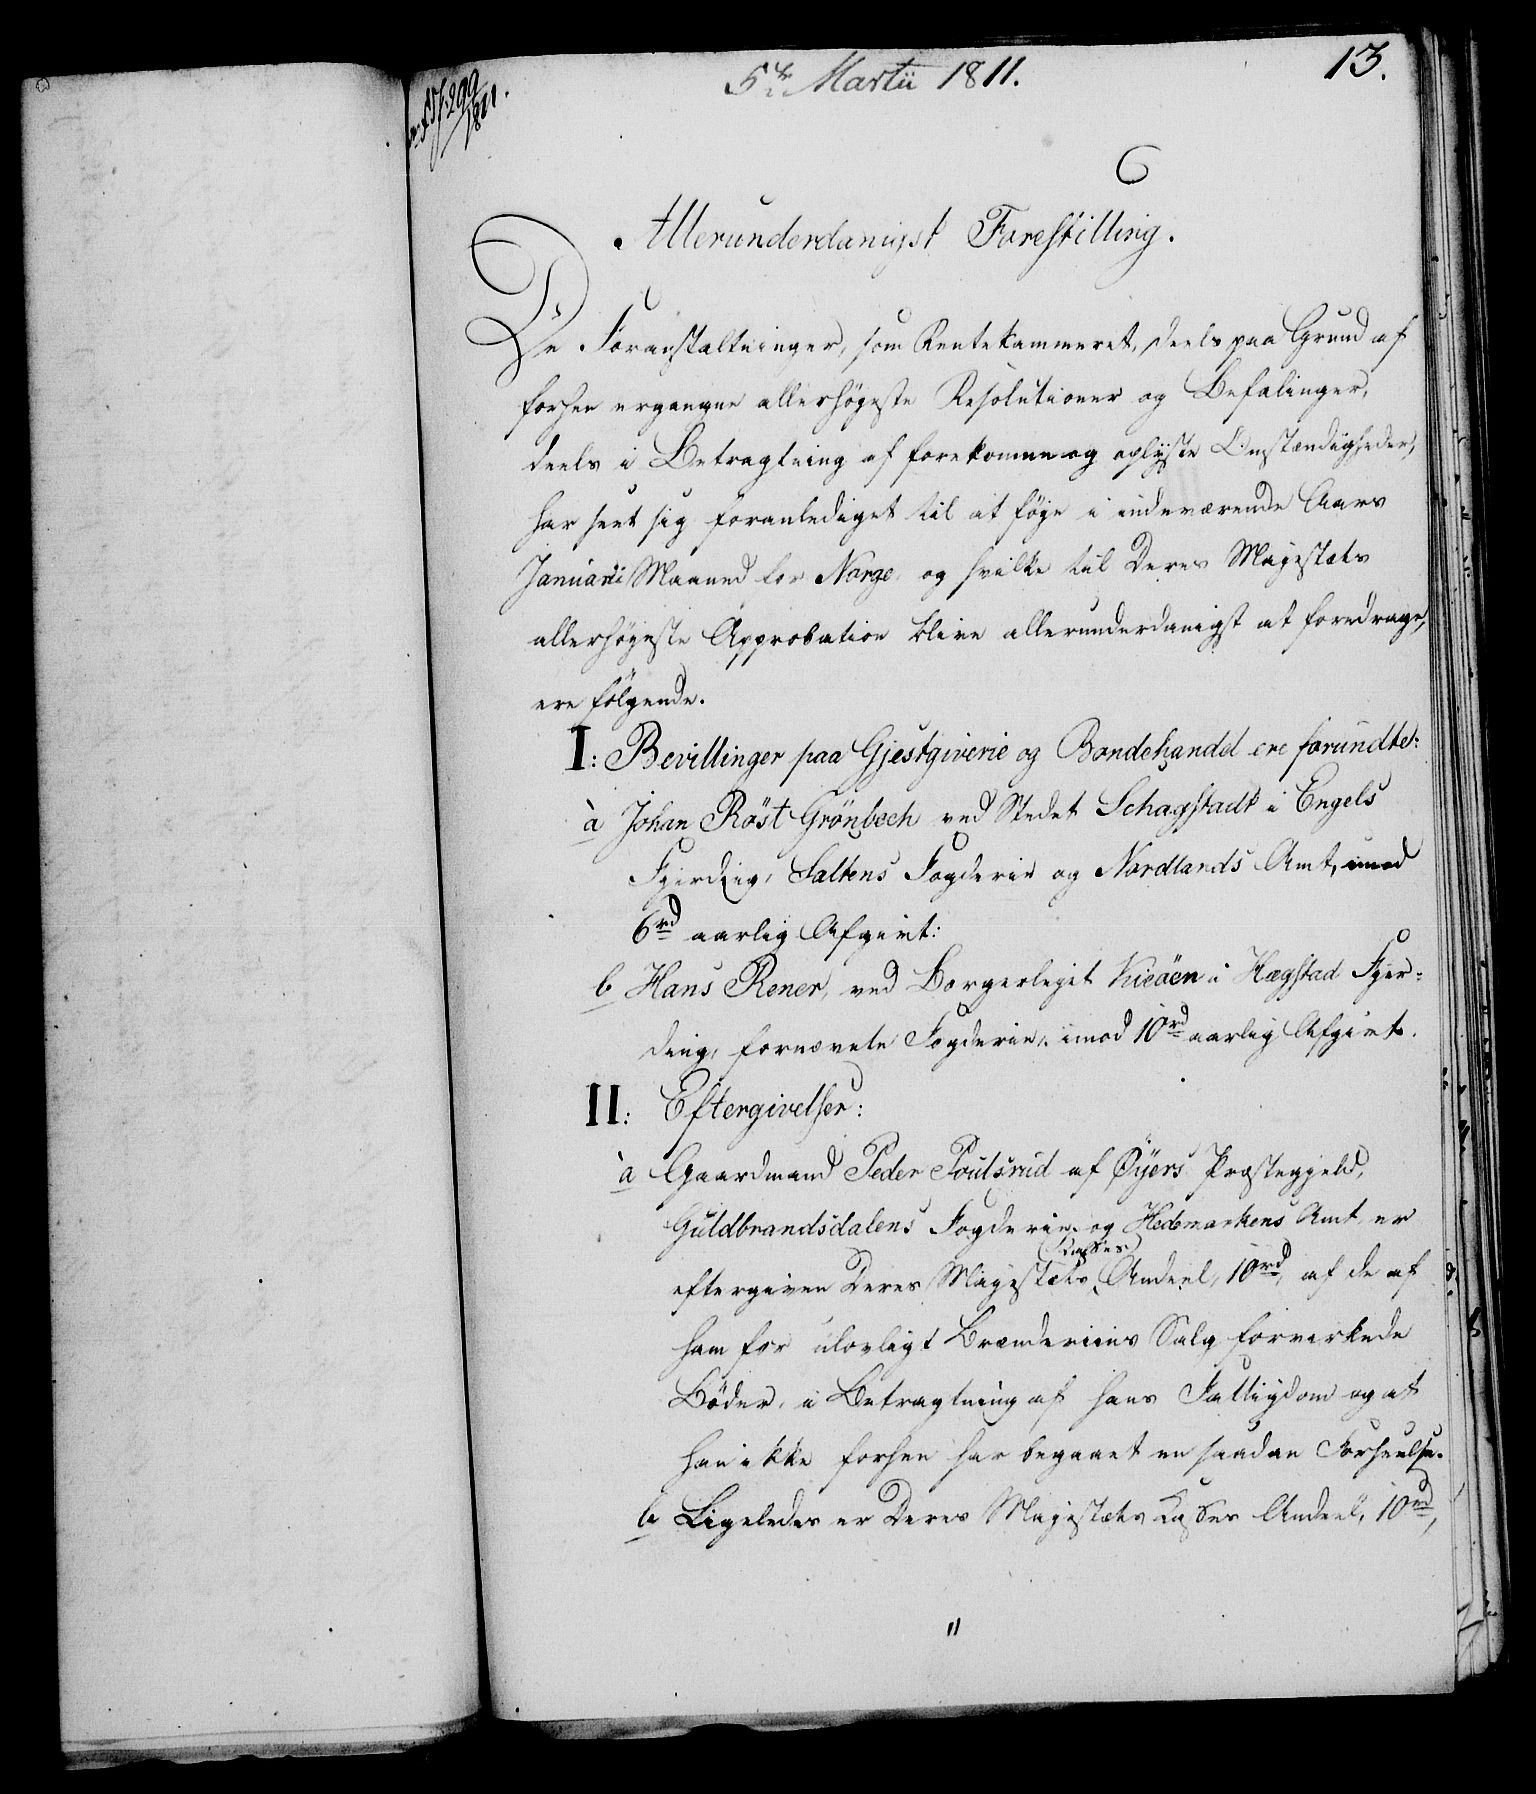 5te Martii 1811.
13.
Allerunderdanigst Forestilling.
De Foranstaltninger, som Rentekammeret, deels paa Grund af
forhen ergangne allerhøyeste Resolutioner og Befalinger,
deels i Betragtning af forekomne og oplyste Omstændigheder,
har seet sig foranlediget til at føye i indeværende Aars
Januarii Maaned for Norge, og hvilke til Deres Majestæts
allerhøyeste Approbation blive allerunderdanigst at foredrage,
ere følgende.
I: Bevillinger paa Gjestgiverie og Bondehandel ere forundte:
a Johan Röst Grönbech ved Stedet Schagstadt i Engels
Fjerding, Saltens Fogderie og Nordlands Amt, imod
6rd aarlig Afgivt:
b Hans Rener, ved Borgerleyet Kieöen i Hægstad Fjer-
ding, fornævnte Fogderie, imod 10rd aarlig Afgivt.
II: Eftergivelser:
a Gaardmand Peder Poulsrud af Øyers Præstegjeld,
Guldbrandsdalens Fogderie og Hedemarkens Amt, er
eftergiven Deres Majestæts Kasses Andeel, 10rd, af de af
ham for ulovligt Brændeviins Salg forvirkede
Böder, i Betragtning af hans Fattigdom og at
han ikke forhen har begaaet en saadan Forseelse.
b Ligeledes er Deres Majestæts Kasses Andeel, 10rd,
"